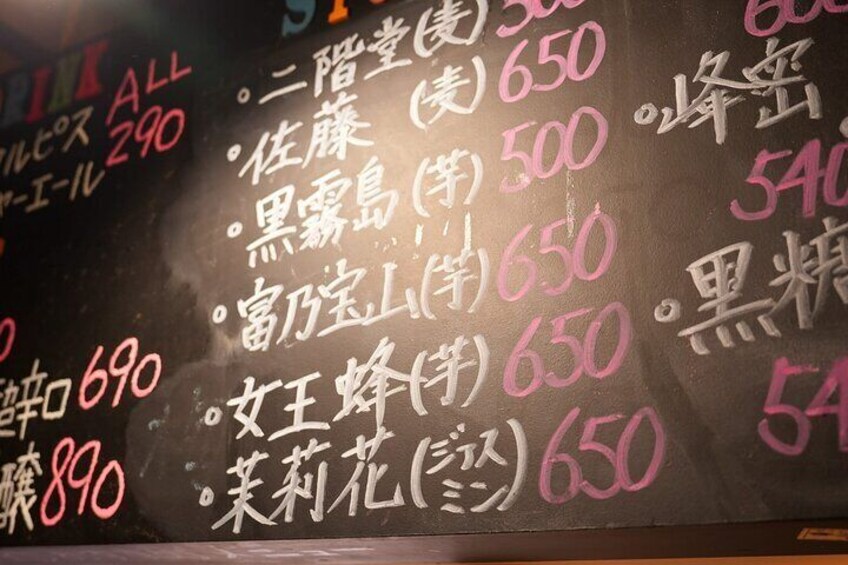 ALL
290
ルピス
ャーエール
690
辛口
890
醸
二階堂(麦)
佐藤 (麦) 650
黒霧島(芋) 500
富乃宝山(芋) 650
女王蜂(芋) 650
茉莉花(ジャスミン) 650
峰密
540
黒糖